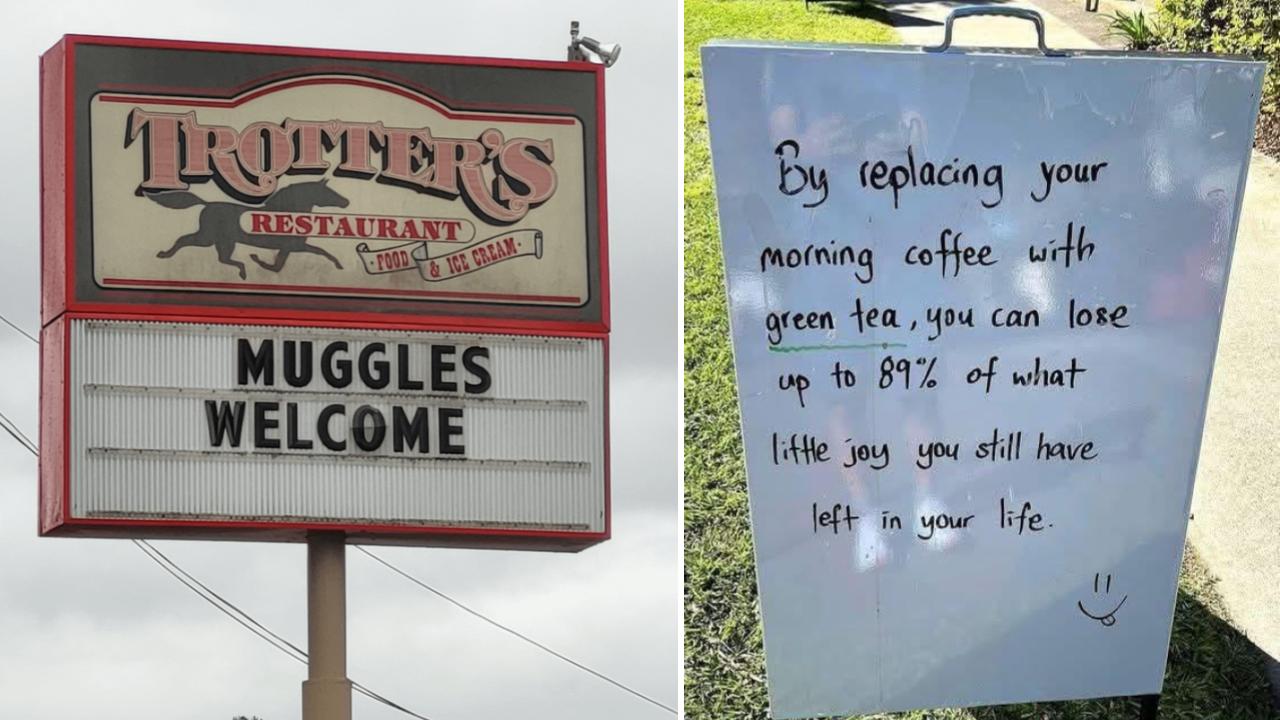 TROTTER'S
RESTAURANT
·FOOD & ICE CREAM·
MUGGLES
WELCOME
By replacing your
morning coffee with
green tea, you can lose
up to 89% of what
little joy you still have
left in your life.